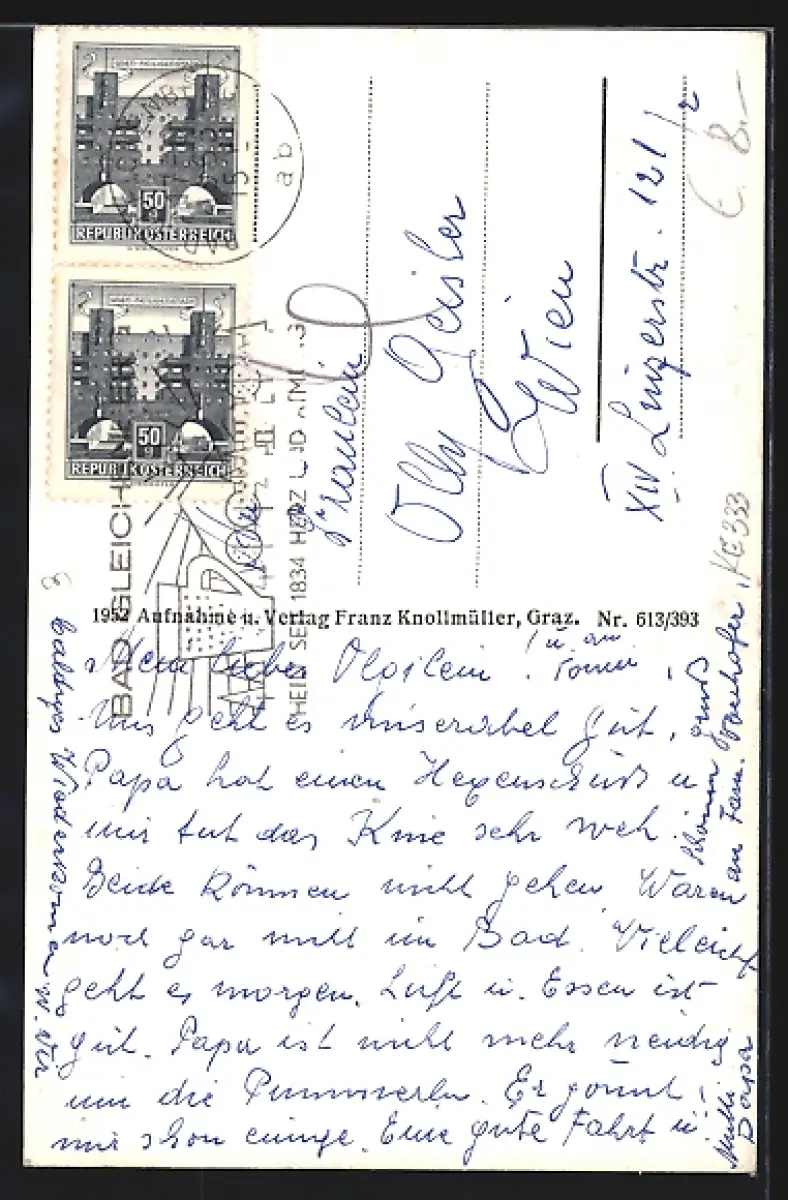 REPUBLIK ÖSTERREICH
50 g
REPUBLIK ÖSTERREICH
50 g
15-
ab
BAD GLEICHE
SEIT 1834 HERZ UND
Fräulein
Olly Geisler
Wien
XIV. Linzerstr. 121/2
8.-
KE333
1952 Aufnahme u. Verlag Franz Knollmüller, Graz. Nr. 613/393
Mein liebes Olgilein! u. an
Uns geht es miserabel gut,
Papa hat einen Hexenschuß u
mir tut das Knie sehr weh.
Beide können nicht gehen. Waren
noch gar nicht im Bad. Vieleicht
geht es morgen. Luft u. Essen ist
gut. Papa ist nicht mehr neidig
um die Pummerln. Er gönnt
mir schon einige. Eine gute Fahrt u.
baldiges Wiedersehen
Mutti
Papa
schönen Gruß
an Fam.